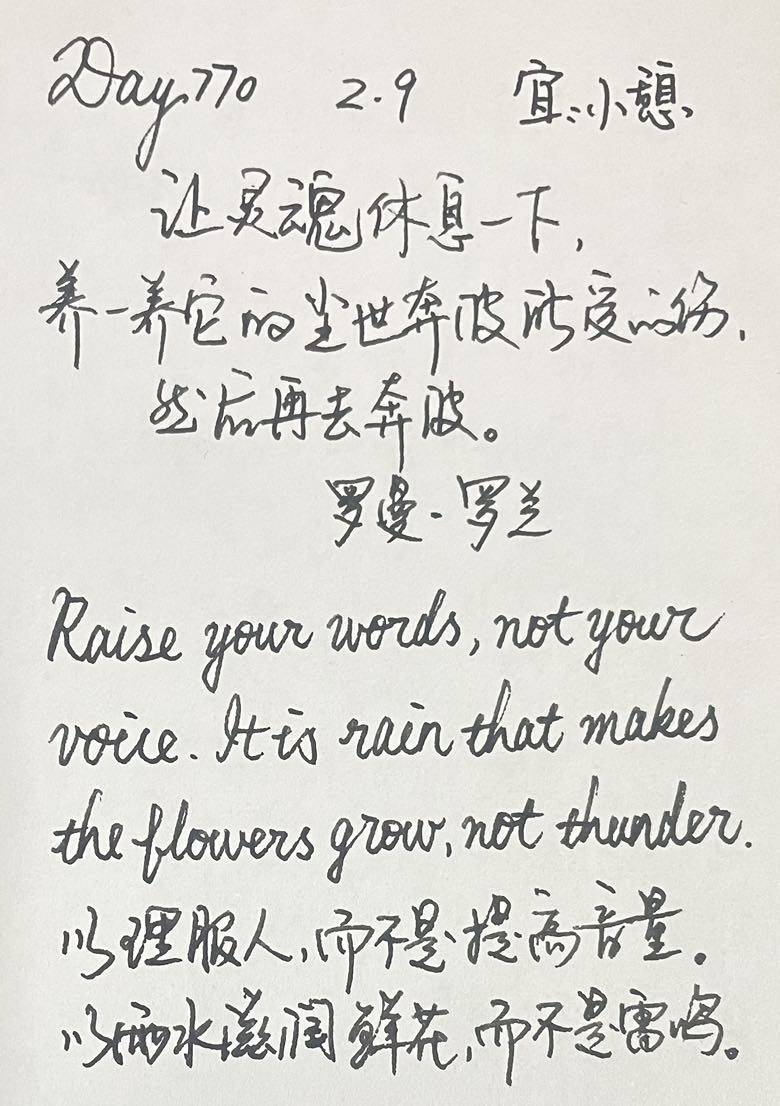 Day 770 2.9 宜小憩
让灵魂休息一下,
养一养它的尘世奔波所受的伤,
然后再去奔波。
罗曼·罗兰
Raise your words, not your
voice. It is rain that makes
the flowers grow, not thunder.
以理服人,而不是提高音量.
以雨水滋润鲜花,而不是雷鸣。